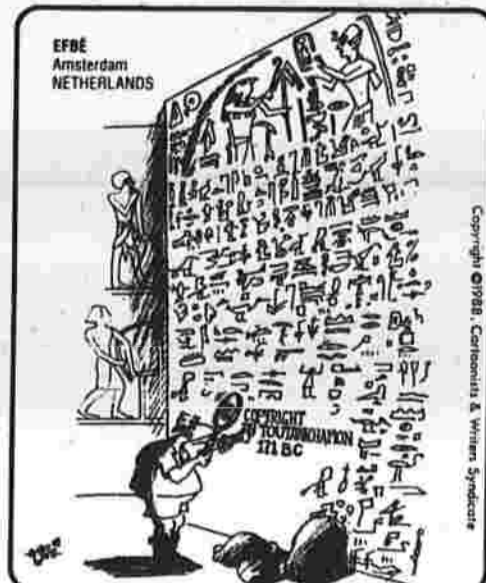 EFBÉ
Amsterdam
NETHERLANDS
COPYRIGHT
TOUTANKHAMON
171 BC
Copyright ©1988, Cartoonists & Writers Syndicate